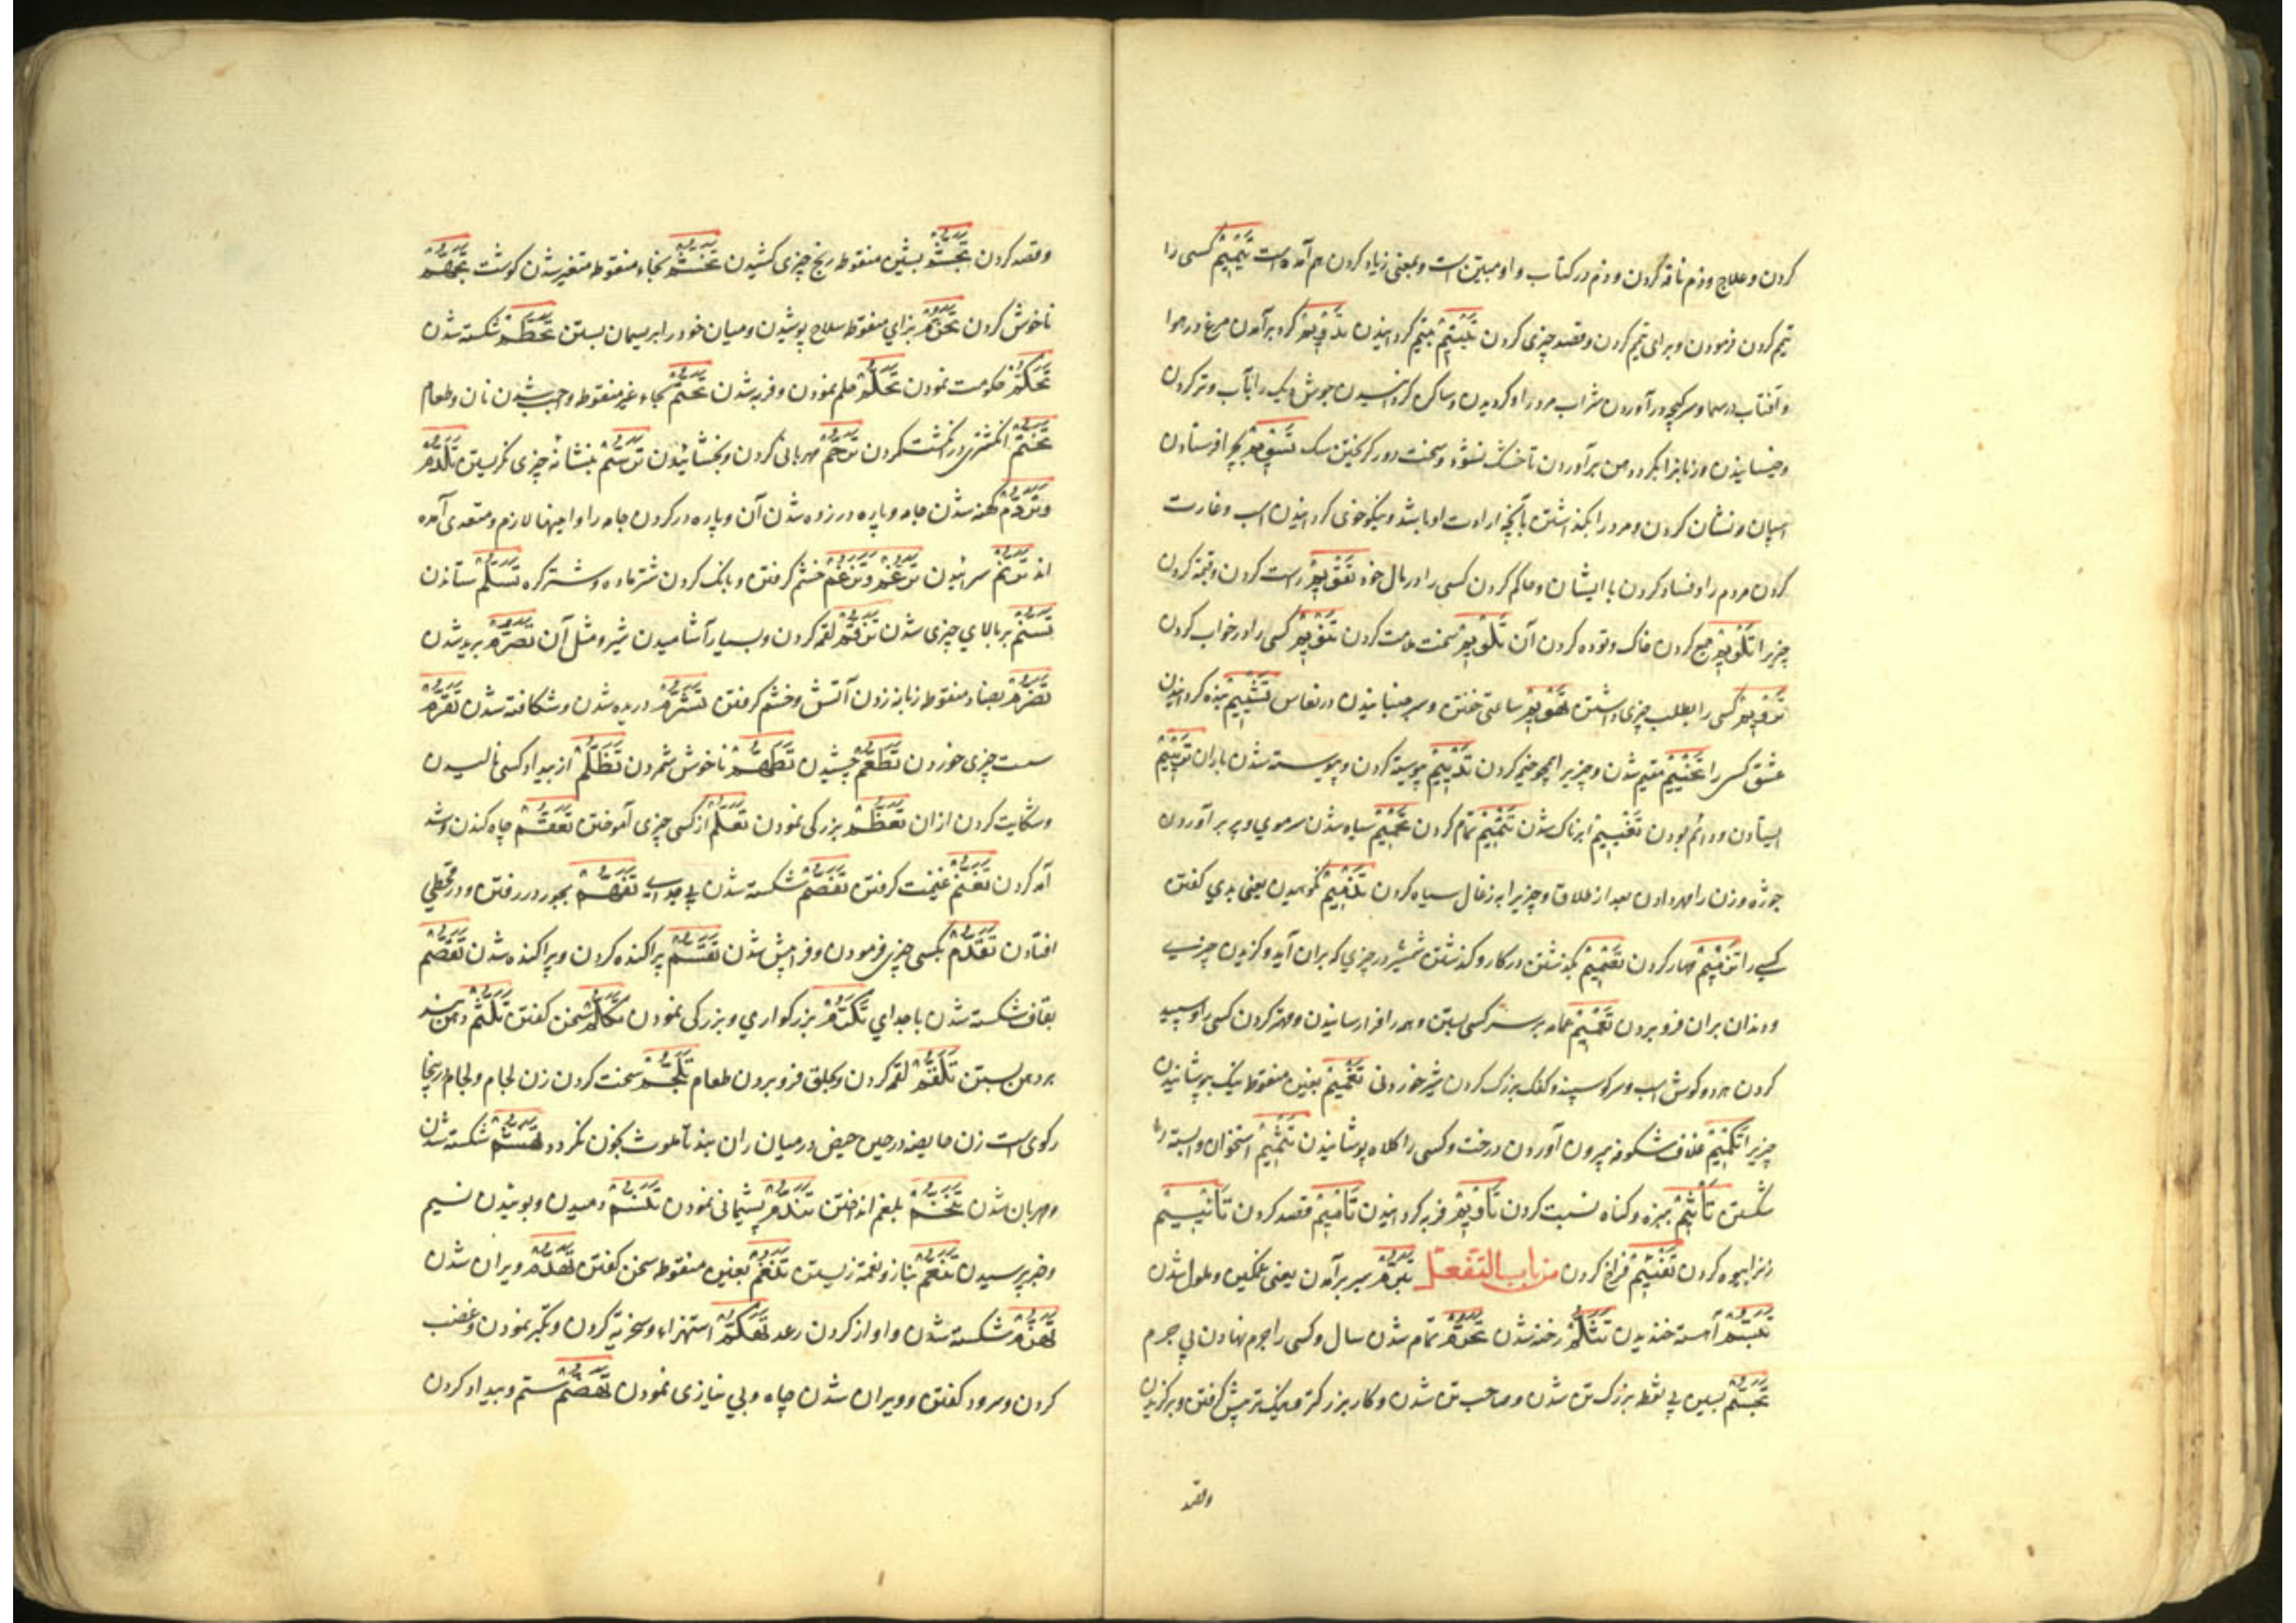 کردن و علاج وذم ناقه کردن و وذم در کتاب واو مبین است و بمعنی زیاد کردن هم آمده است تَیْمِیْمٌ کسی را
تیم کردن فرمودن و برای تیم کردن و قصد چیزی کردن تَیْتِیْمٌ یتیم گردانیدن تَدْوِیْمٌ گرد برآمدن مرغ در هوا
و آفتاب در سما و سرگیجه در آوردن شراب مرد را و گردیدن و ساکن گردانیدن جوش دیک را بآب و تر کردن
و خیسانیدن و زبانرا بگرد دهن برآوردن تا خشک نشود و سخت دور گریختن سک تَسْوِیْمٌ بچرا فرستادن
اسپان و نشان کردن و مرد را بگذاشتن با آنچه ارادت او باشد و نیکوخوی گردانیدن اسب و غارت
کردن مردم را و فساد کردن با ایشان و حاکم کردن کسی را در مال خود تَقْوِیْمٌ راست کردن و قیمة کردن
چیز را تَکْوِیْمٌ جمع کردن خاک و توده کردن آن تَلْوِیْمٌ سخت ملامت کردن تَنْوِیْمٌ کسی را در خواب کردن
کسی را بطلب چیزی داشتن تَهْوِیْمٌ ساعتی خفتن و سر جنبانیدن در نعاس تَتْیِیْمٌ بنده گردانیدن
عشق کس را تَخْیِیْمٌ مقیم شدن و چیز را همچو خیمه کردن تَدْیِیْمٌ پیوسته کردن و پیوسته شدن باران تَرْیِیْمٌ
ایستادن و دائم بودن تَغْیِیْمٌ ابرناک شدن تَتْمِیْمٌ تمام کردن تَحْمِیْمٌ سیاه شدن سر موی و پر برآوردن
جوژه و زن را مهر دادن بعد از طلاق و چیز را به زغال سیاه کردن تَذْمِیْمٌ نکوهیدن یعنی بدی گفتن
کسی را تَزْمِیْمٌ مهار کردن تَصْمِیْمٌ بگذشتن در کار و گذشتن شمشیر در چیزی که بران آید و گزیدن چیزی
و دندان بران فرو بردن تَعْمِیْمٌ عمامه بر سر کسی بستن و همه را فرا رسانیدن و مهتر کردن کسی را و سپید
کردن هر دو گوش اسب و سر گوسپند و کفک بزرک کردن شیر خوردنی تَغْمِیْمٌ بغین منقوط نیک بپوشانیدن
چیز را تَکْمِیْمٌ غلاف شکوفه بیرون آوردن درخت و کسی را کلاه پوشانیدن تَتْمِیْمٌ استخوان وابسته را
شکستن تَأْثِیْمٌ ببزه و کناه نسبت کردن تَأْوِیْمٌ فربه گردانیدن تَأْمِیْمٌ قصد کردن تَأْیِیْمٌ
زنرا بیوه کردن تَفْتِیْمٌ فراخ کردن من باب التفعّل تَبَرُّمٌ بسر برآمدن یعنی غمگین و ملول شدن
تَبَسُّمٌ آهسته خندیدن تَثَلُّمٌ رخنه شدن تَجَرُّمٌ تمام شدن سال و کسی را جرم نهادن بی جرم
تَجَسُّمٌ بسین بی نقط بزرک تن شدن و صاحب تن شدن و کار بزرکتر و نیکتر پیش گرفتن و برگزیدن
وقصد
وقصد کردن تَجَشُّمٌ بشین منقوطه رنج چیزی کشیدن تَخَشُّمٌ بخاء منقوط متغیر شدن کوشت تَجَهُّمٌ
ناخوش کردن تَحَزُّمٌ بزای منقوط سلاح پوشیدن و میان خود را بریسمان بستن تَحَطُّمٌ شکسته شدن
تَحَکُّمٌ حکومت نمودن تَحَلُّمٌ حلم نمودن و فربه شدن تَحَتُّمٌ بحاء غیر منقوط واجب شدن نان و طعام
تَخَتُّمٌ انکشتری در انکشت کردن تَرَحُّمٌ مهربانی کردن و بخشائیدن تَوَسُّمٌ بنشانه چیزی نگریستن تَلَدُّمٌ
وتَرَدُّمٌ کهنه شدن جامه و پاره در زده شدن آن و پاره در کردن جامه را و اینها لازم و متعدی آمده
اند تَرَنُّمٌ سرائیدن تَرَغُّمٌ وتَزَغُّمٌ خشم گرفتن و بانک کردن شتر ماده و شتر کره تَسَلُّمٌ ستاندن
تَسَنُّمٌ بر بالای چیزی شدن تَزَقُّمٌ لقمه کردن و بسیار آشامیدن شیر و مثل آن تَصَرُّمٌ بریده شدن
تَضَرُّمٌ بضاد منقوط زبانه زدن آتش و خشم گرفتن تَشَرُّمٌ دریده شدن و شکافته شدن تَقَرُّمٌ
سست چیزی خوردن تَطَعُّمٌ چشیدن تَطَهُّمٌ ناخوش شمردن تَظَلُّمٌ از بیداد کسی نالیدن
و شکایت کردن ازان تَعَظُّمٌ بزرکی نمودن تَعَلُّمٌ از کسی چیزی آموختن تَعَقُّمٌ چاه کندن وشد
آمد کردن تَغَنُّمٌ غنیمت گرفتن تَفَصُّمٌ شکسته شدن بی جدایی تَقَحُّمٌ بجور در رفتن و در قحطی
افتادن تَقَدُّمٌ بکسی چیزی فرمودن و فرا پیش شدن تَقَسُّمٌ پراکنده کردن و پراکنده شدن تَقَصُّمٌ
بقاف شکسته شدن با جدای تَکَرُّمٌ بزرکواری و بزرکی نمودن تَکَلُّمٌ سخن گفتن تَلَثُّمٌ دهن بند
بر دهن بستن تَلَقُّمٌ لقمه کردن و بحلق فرو بردن طعام تَلَجُّمٌ سخت کردن زن لجام و لجام اینجا
رکوی است زن حایضه در حین حیض در میان ران بندد تا ملوث بخون نکردد تَهَشُّمٌ شکسته شدن
و مهربان شدن تَنَخُّمٌ بلغم انداختن تَنَدُّمٌ پشیمانی نمودن تَنَسُّمٌ دمیدن و بوئیدن نسیم
و خبر پرسیدن تَنَعُّمٌ بناز و نعمة زیستن تَنَغُّمٌ بغین منقوطه سخن گفتن تَهَدُّمٌ ویران شدن
تَهَزُّمٌ شکسته شدن و اواز کردن رعد تَهَکُّمٌ استهزاء و سخریة کردن و تکبر نمودن و غضب
کردن و سرود گفتن و ویران شدن چاه و بی نیازی نمودن تَهَضُّمٌ ستم و بیداد کردن